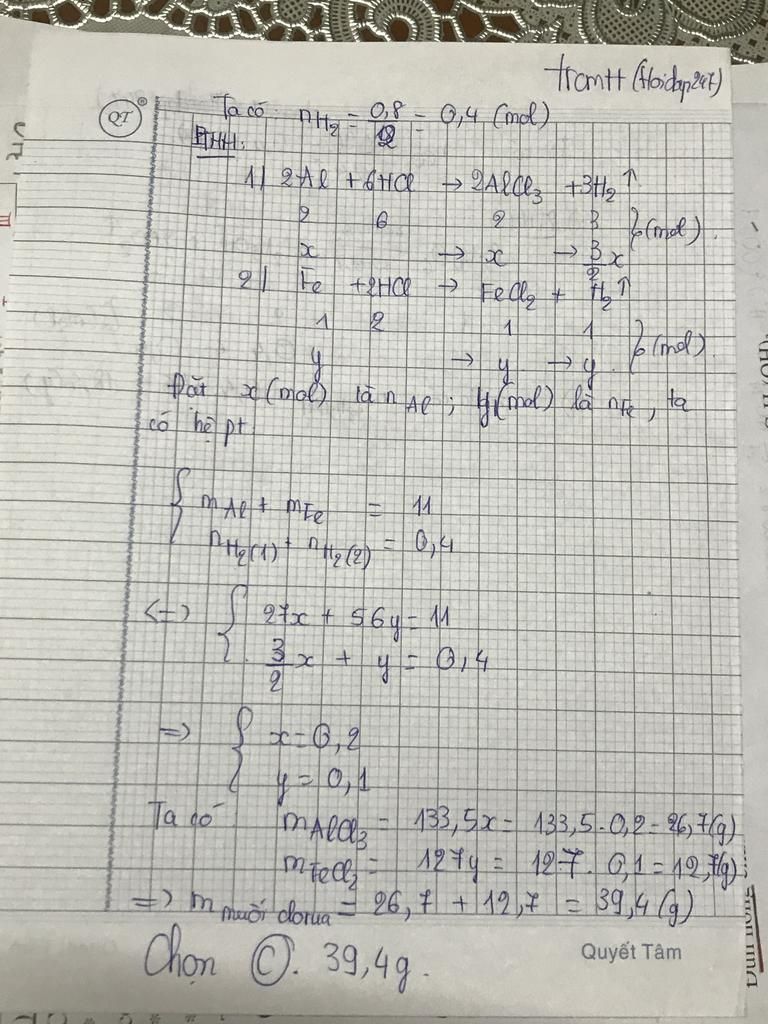 trcmtt (Hoidap247)
QT
Ta có nH2 = 0,8/2 = 0,4 (mol)
PTHH:
1) 2Al + 6HCl → 2AlCl3 + 3H2↑
2 6 2 3 } (mol)
x → x → 3/2 x
2) Fe + 2HCl → FeCl2 + H2↑
1 2 1 1 } (mol)
y → y → y
Đặt x (mol) là nAl ; y (mol) là nFe, ta
có hệ pt
{ mAl + mFe = 11
nH2(1) + nH2(2) = 0,4
<=> { 27x + 56y = 11
3/2 x + y = 0,4
=> { x = 0,2
y = 0,1
Ta có mAlCl3 = 133,5x = 133,5 . 0,2 = 26,7(g)
mFeCl2 = 127y = 127 . 0,1 = 12,7(g)
=> m muối clorua = 26,7 + 12,7 = 39,4 (g)
Chọn C. 39,4g.
Quyết Tâm